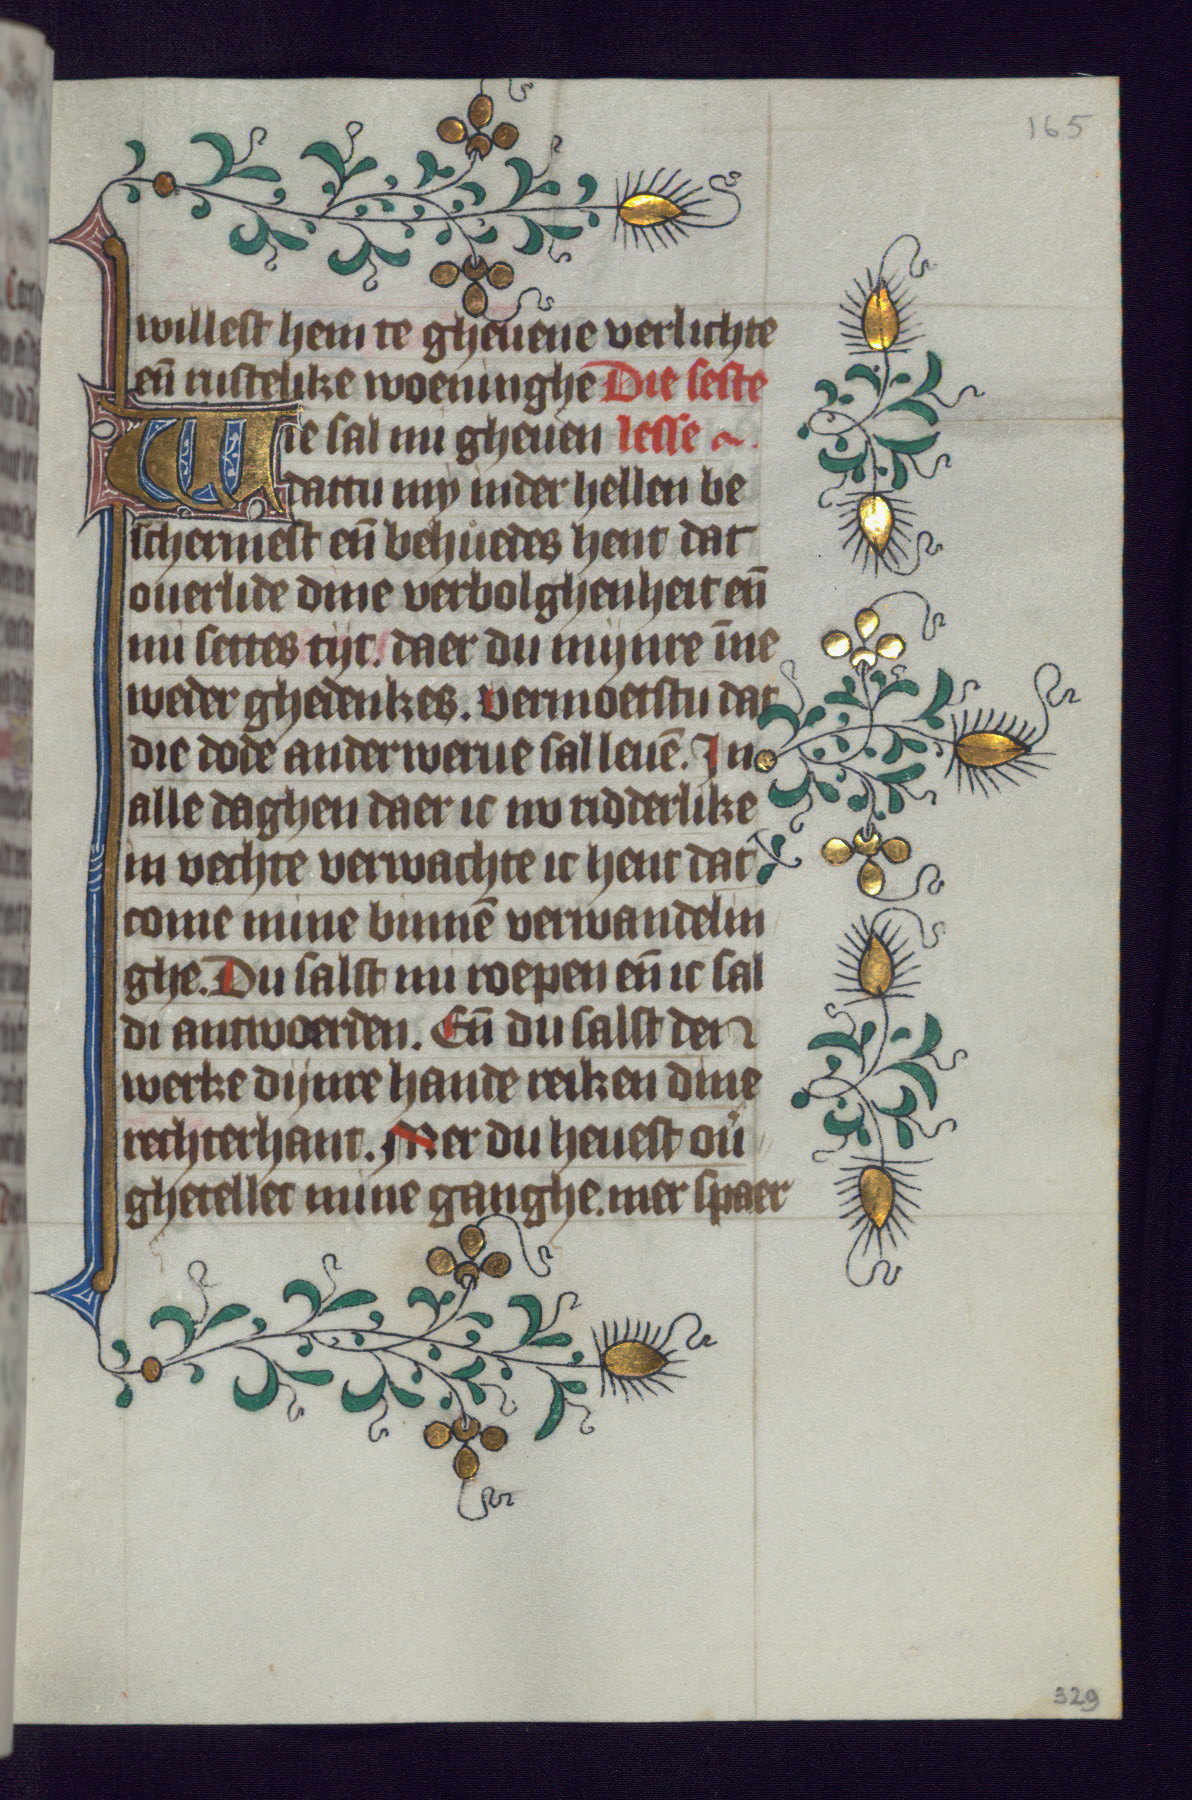 165
willest hem te gheuene verlichte
eñ rustelike woeninghe Die seste
Wie sal mi gheuen lesse
dattu my inder hellen be
schermest eñ behuedes hent dat
ouerlide dine verbolghenheit eñ
mi settes tijt. daer du mijnre īne
weder ghedenkes. Vermoetstu dat
die dode anderwerue sal leuē. In
alle daghen daer ic nv ridderlike
in vechte verwachte ic hent dat
come mine binnē verwandelin
ghe. Du salst mi roepen eñ ic sal
di antwoerden. Eñ du salst den
werke dijnre hande reiken dine
rechterhant. Mer du heuest
ghetellet mine ganghe. mer spaer
329